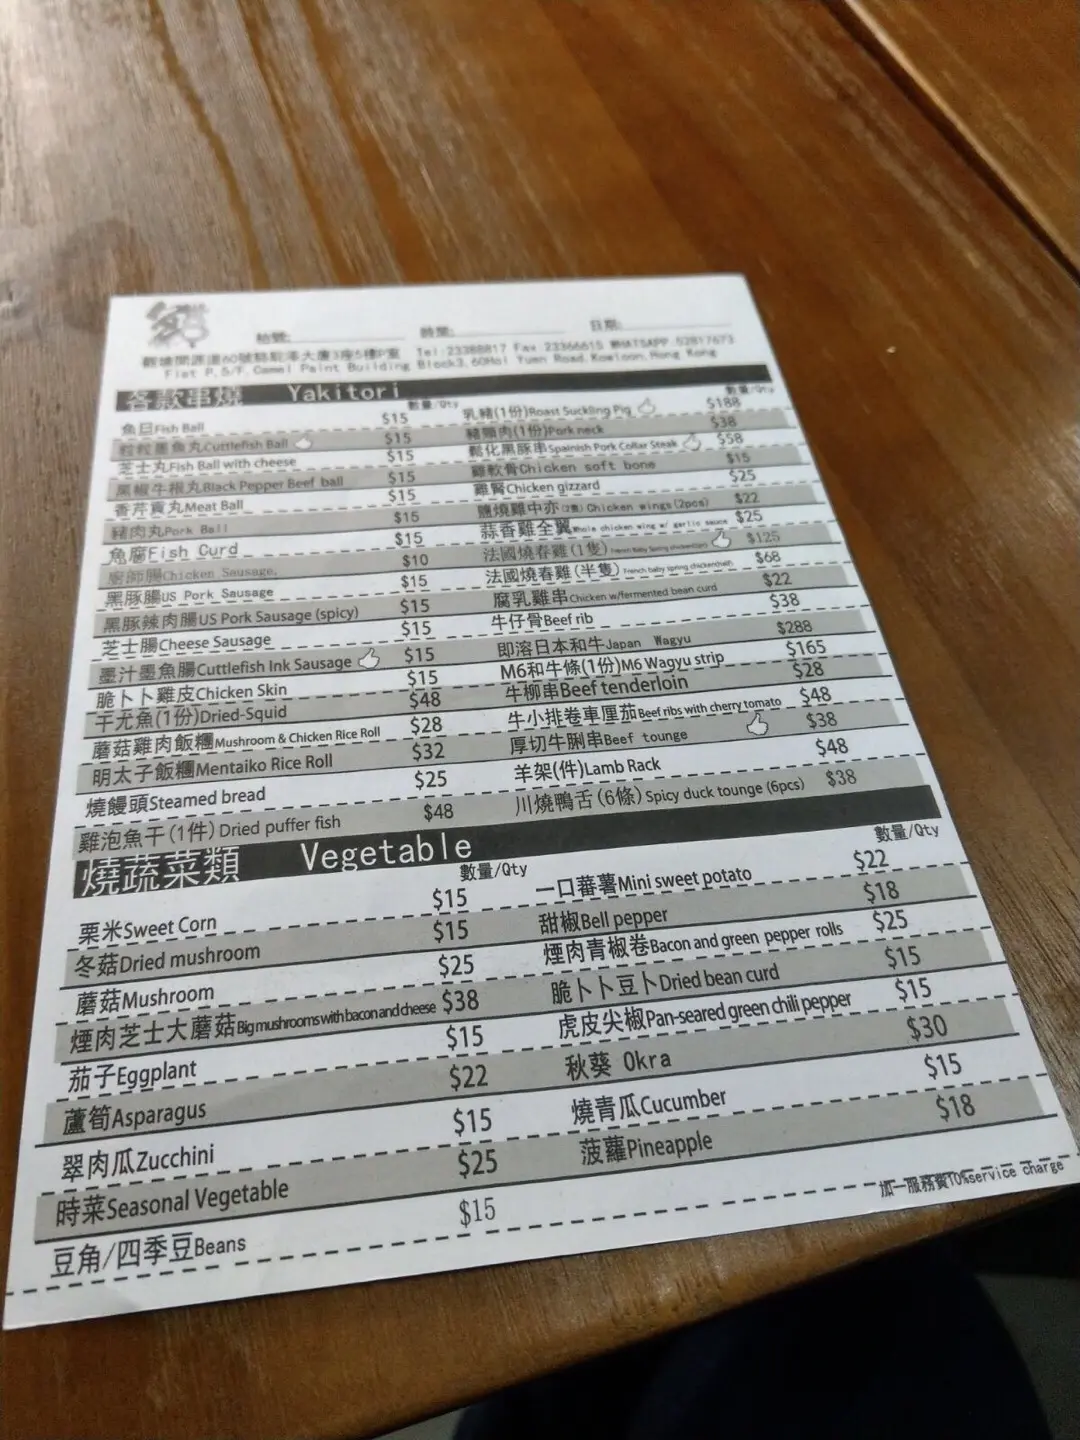 枱號:
時間:
日期:
觀塘開源道60號駱駝漆大廈3座5樓P室 Tel:23388817 Fax:23366615 WHATSAPP 52817673
Flat P,5/F,Camel Paint Building Block3,60Hoi Yuen Road,Kowloon,Hong Kong
各款串燒 Yakitori
數量/Qty
數量/Qty
魚旦Fish Ball $15
粒粒墨魚丸Cuttlefish Ball $15
芝士丸Fish Ball with cheese $15
黑椒牛根丸Black Pepper Beef ball $15
香芹貢丸Meat Ball $15
豬肉丸Pork Ball $15
魚腐Fish Curd $15
廚師腸Chicken Sausage. $10
黑豚腸US Pork Sausage $15
黑豚辣肉腸US Pork Sausage (spicy) $15
芝士腸Cheese Sausage $15
墨汁墨魚腸Cuttlefish Ink Sausage $15
脆卜卜雞皮Chicken Skin $15
干尤魚(1份)Dried-Squid $48
蘑菇雞肉飯糰Mushroom & Chicken Rice Roll $28
明太子飯糰Mentaiko Rice Roll $32
燒饅頭Steamed bread $25
雞泡魚干(1件)Dried puffer fish $48
乳豬(1份)Roast Suckling Pig $188
豬頸肉(1份)Pork neck $38
鬆化黑豚串Spainish Pork Collar Steak $58
雞軟骨Chicken soft bone $15
雞腎Chicken gizzard $25
鹽燒雞中亦(2隻)Chicken wings(2pcs) $22
蒜香雞全翼Whole chicken wing w/ garlic sauce $25
法國燒春雞(1隻)French Baby Spring chicken(1pc) $125
法國燒春雞(半隻)French baby spring chicken(half) $68
腐乳雞串Chicken w/fermented bean curd $22
牛仔骨Beef rib $38
即溶日本和牛Japan Wagyu $288
M6和牛條(1份)M6 Wagyu strip $165
牛柳串Beef tenderloin $28
牛小排卷車厘茄Beef ribs with cherry tomato $48
厚切牛脷串Beef tounge $38
羊架(件)Lamb Rack $48
川燒鴨舌(6條)Spicy duck tounge (6pcs) $38
燒蔬菜類 Vegetable
數量/Qty
數量/Qty
栗米Sweet Corn $15
冬菇Dried mushroom $15
蘑菇Mushroom $25
煙肉芝士大蘑菇Big mushrooms with bacon and cheese $38
茄子Eggplant $15
蘆筍Asparagus $22
翠肉瓜Zucchini $15
時菜Seasonal Vegetable $25
豆角/四季豆Beans $15
一口蕃薯Mini sweet potato $22
甜椒Bell pepper $18
煙肉青椒卷Bacon and green pepper rolls $25
脆卜卜豆卜Dried bean curd $15
虎皮尖椒Pan-seared green chili pepper $15
秋葵 Okra $30
燒青瓜Cucumber $15
菠蘿Pineapple $18
加一服務費10%service charge